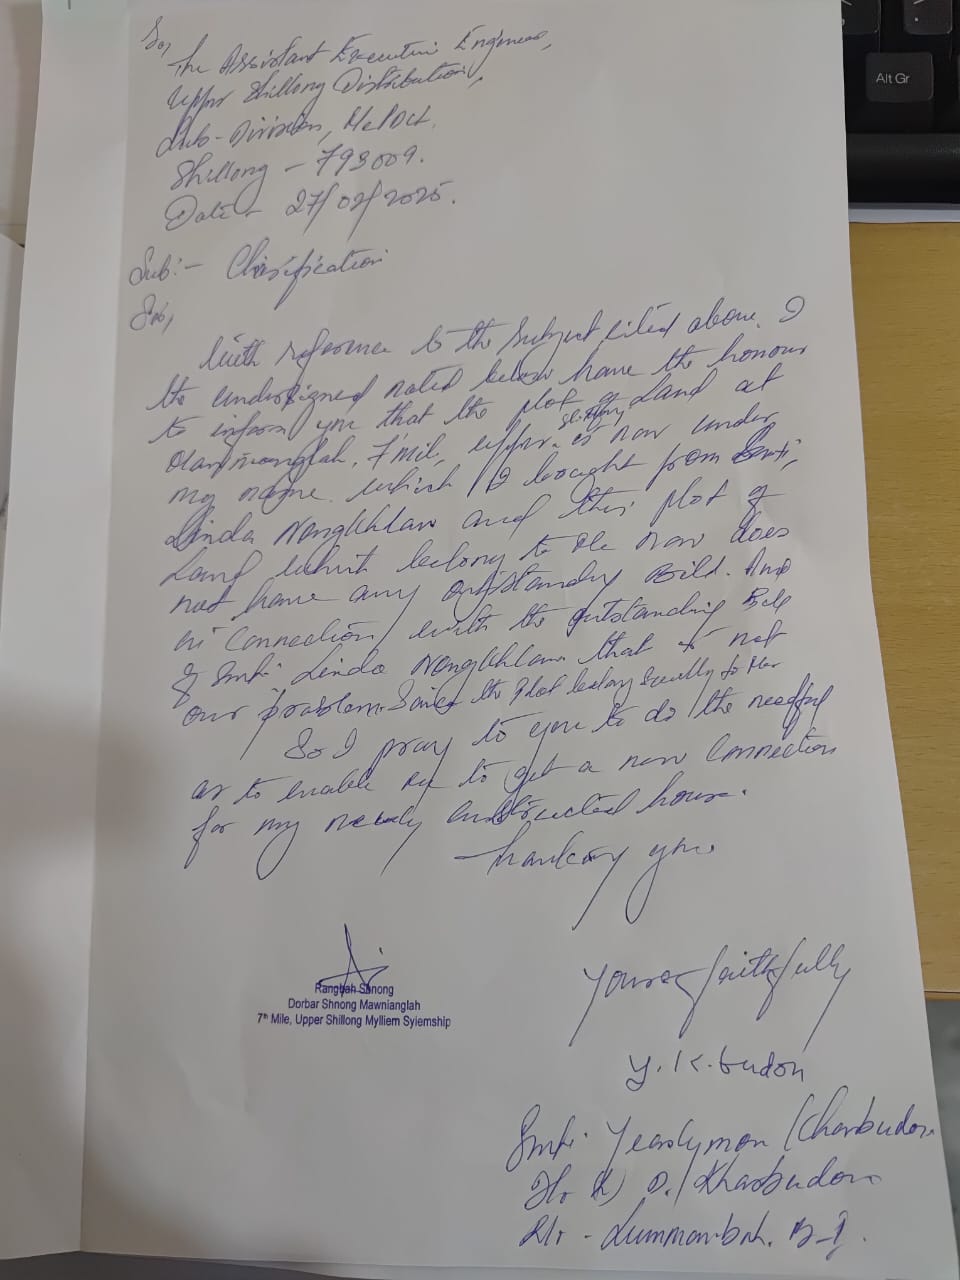 To,
The Assistant Executive Engineer,
Upper Shillong Distribution,
Sub-Division, MePDCL.
Shillong - 793009.
Date - 27/02/2025.
Sub:- Clarification
Sir,
With reference to the subject cited above. I
the undersigned noted below have the honour
to inform you that the plot of Land at
Mawnianglah, 7 mile, upper Shillong is now under
my name. which I bought from Smti,
Linda Nongkhlaw and this plot of
Land which belong to me now does
not have any outstanding Bill. And
in connection with the outstanding Bill
of Smti Linda Nongkhlaw that is not
our problem. Since the Plot belong to Her
So I pray to you to do the needful
as to enable me to get a new connection
for my newly constructed house.
Thanking you
Yours faithfully
Y. K. budon
Smti. Yearlymon Kharbudon
D. Kharbudon
R/o -
Alt Gr
Rangbah Shnong
Dorbar Shnong Mawnianglah
7th Mile, Upper Shillong Mylliem Syiemship